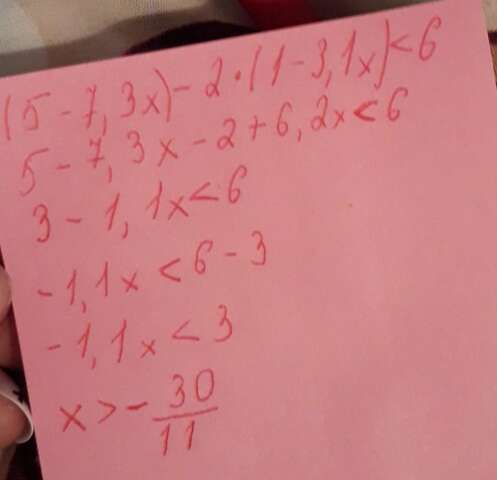 (5 - 7, 3x) - 2 · (1 - 3, 1x) < 6
5 - 7, 3x - 2 + 6, 2x < 6
3 - 1, 1x < 6
-1, 1x < 6 - 3
-1, 1x < 3
x > - 30/11